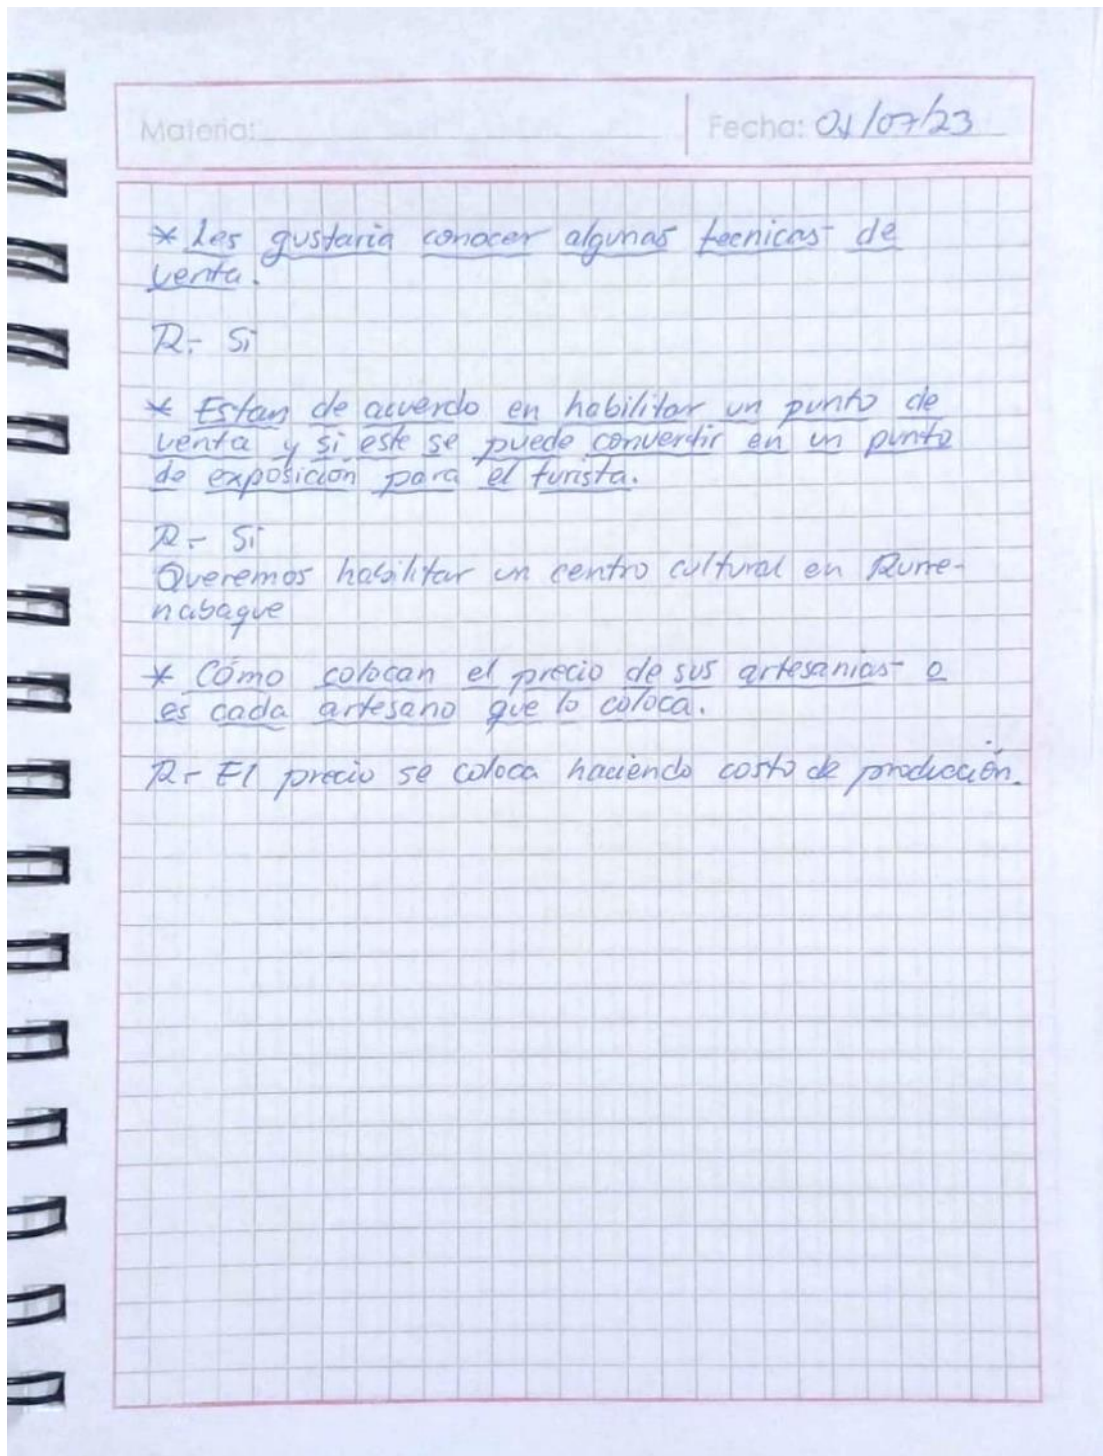 Materia:
Fecha: 01/07/23
* Les gustaria conocer algunas tecnicas de
venta.
R.- Si
* Estan de acuerdo en habilitar un punto de
venta y si este se puede convertir en un punto
de exposición para el turista.
R.- Si
Queremos habilitar un centro cultural en Rurre-
nabaque
* Cómo colocan el precio de sus artesanias o
es cada artesano que lo coloca.
R.- El precio se coloca haciendo costo de producción.